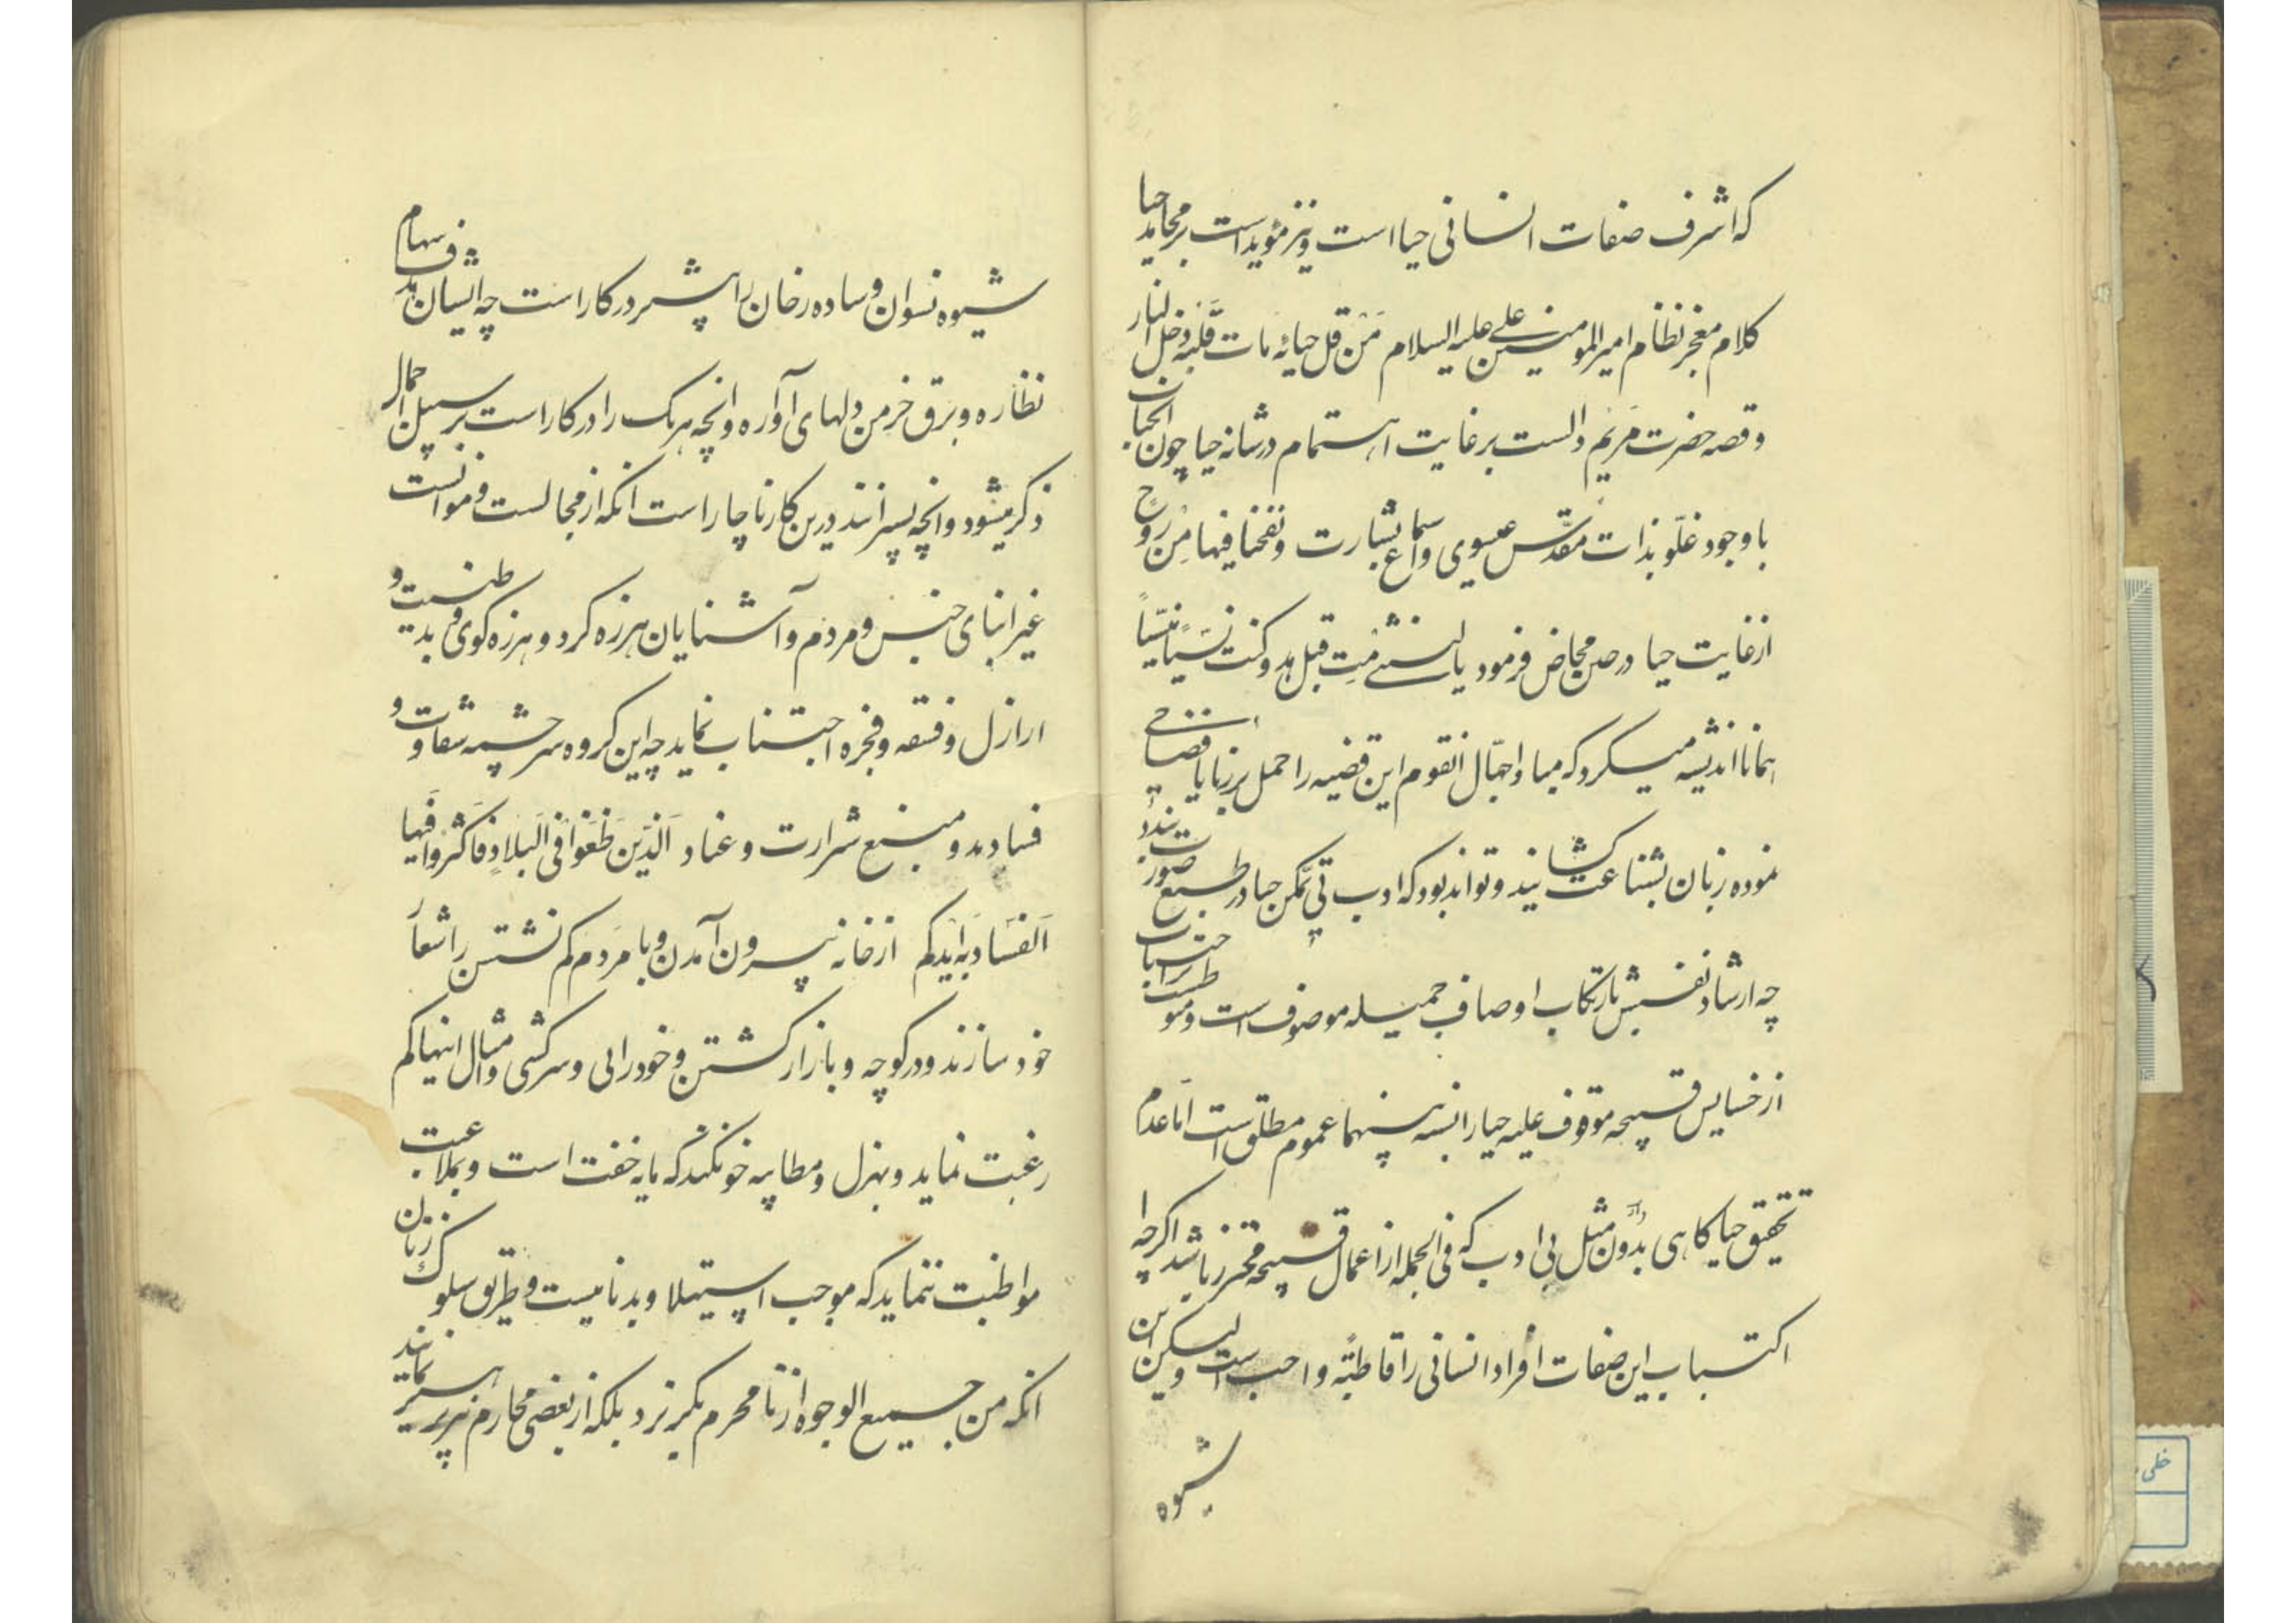 که اشرف صفات انسانی حیا است و نیز مؤید است بر محامد حیا
کلام معجز نظام امیر المومنین علی علیه السلام مَنْ قل حیائه مات قلبَه دخل النار
و قصه حضرت مریم دالست بر غایت اهتمام در شانه حیا چون انجناب
با وجود علّو بذات مقدّس عیسوی و سماع بشارت و نفخنا فیها مِن روح
از غایت حیا در حین مخاض فرمود یا لیتنی مِت قبل هذا و کنت نسیاً منسیّاً
همانا اندیشه میکرد که مبادا جهّال انقوم این قضیه را حمل بر زنا یا افتضاحی
نموده زبان بشناعت کشانیند و تواند بود که ادب بی تمکن حیا در طبع صورت نبندد
چه ارشاد نفس بارتکاب اوصاف جمیله موصوف است و موطنست اجتناب
از خسایس قبیحه موقوف علیه حیا را نسبه بینهما عموم مطلق است امّا عدم
تحقیق حیا گاهی بدون مثل بی ادب که فی الجمله از اعمال قبیحه محترز باشد اگر چه
اکتساب این صفات افراد انسانی را قاطبّةً واجب است ولیکن این
شیوه
شیوه نسوان و ساده رخان را بیشتر در کار است چه ایشان هدف سهام
نظاره و برق خرمن دلهای آواره و انچه هر یک را در کار است بر سبیل اجمال
ذکر میشود و انچه پسرانند درین کار ناچار است انکه از مجالست و موانست
غیر ابنای جنس و مردم و آشنایان هرزه گرد و هرزه گوی و بد طینت و
ارازل و فسقه و فجره اجتناب نماید چه این گروه سرچشمه شقاوت و
فسادند و منبع شرارت و عناد اَلَّذین طَغَوا فی البلادِ فاَکثروا فَیها
اَلفَساد به ایدکم از خانه بیرون آمدن و با مردم کم نشستن را شعار
خود سازند و در کوچه و بازار گشتن و خودرایی و سرکشی و امثال اینها کم
رغبت نماید و بهزل و مطایبه خو نکند که مایه خفت است و بملاعبت
مواظبت ننماید که موجب استیلا و بدنامیست و طریق سلوک زنان
انکه من جمیع الوجوه از نامحرم بگریزد بلکه از بعضی محارم نیز پرهیز نمایند
خطی